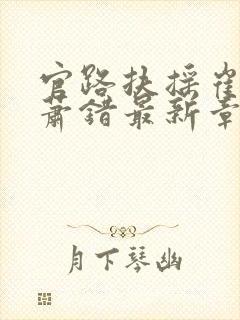 官路扶摇崔
萧错最新章
月下琴幽